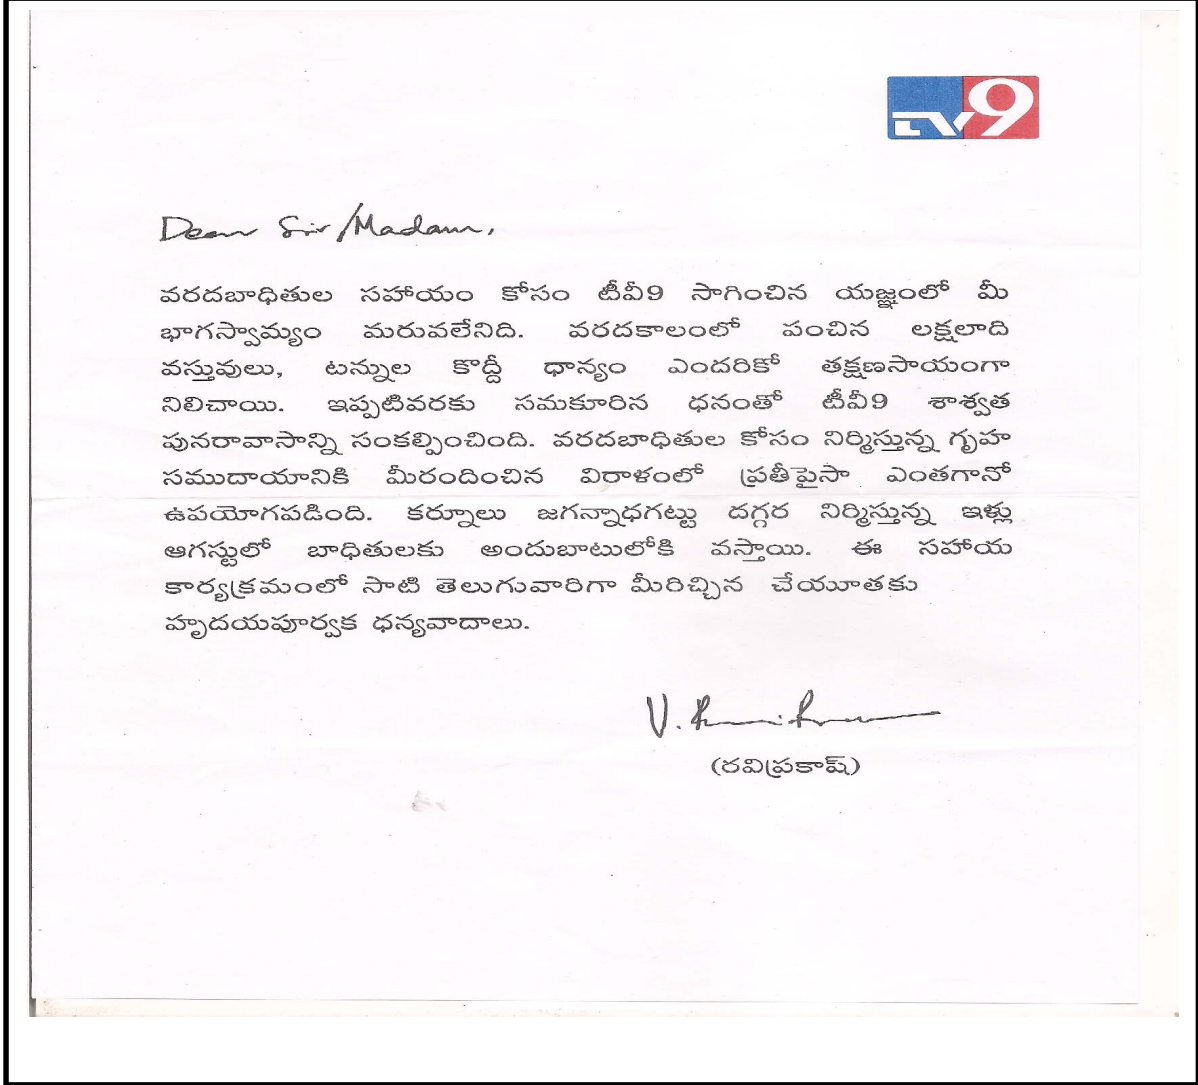 TV9
Dear Sir/Madam,
వరదబాధితుల సహాయం కోసం టీవీ9 సాగించిన యజ్ఞంలో మీ
భాగస్వామ్యం మరువలేనిది. వరదకాలంలో పంచిన లక్షలాది
వస్తువులు, టన్నుల కొద్దీ ధాన్యం ఎందరికో తక్షణసాయంగా
నిలిచాయి. ఇప్పటివరకు సమకూరిన ధనంతో టీవీ9 శాశ్వత
పునరావాసాన్ని సంకల్పించింది. వరదబాధితుల కోసం నిర్మిస్తున్న గృహ
సముదాయానికి మీరందించిన విరాళంలో ప్రతీపైసా ఎంతగానో
ఉపయోగపడింది. కర్నూలు జగన్నాధగట్టు దగ్గర నిర్మిస్తున్న ఇళ్లు
ఆగస్టులో బాధితులకు అందుబాటులోకి వస్తాయి. ఈ సహాయ
కార్యక్రమంలో సాటి తెలుగువారిగా మీరిచ్చిన చేయూతకు
హృదయపూర్వక ధన్యవాదాలు.
V.
(రవిప్రకాష్)